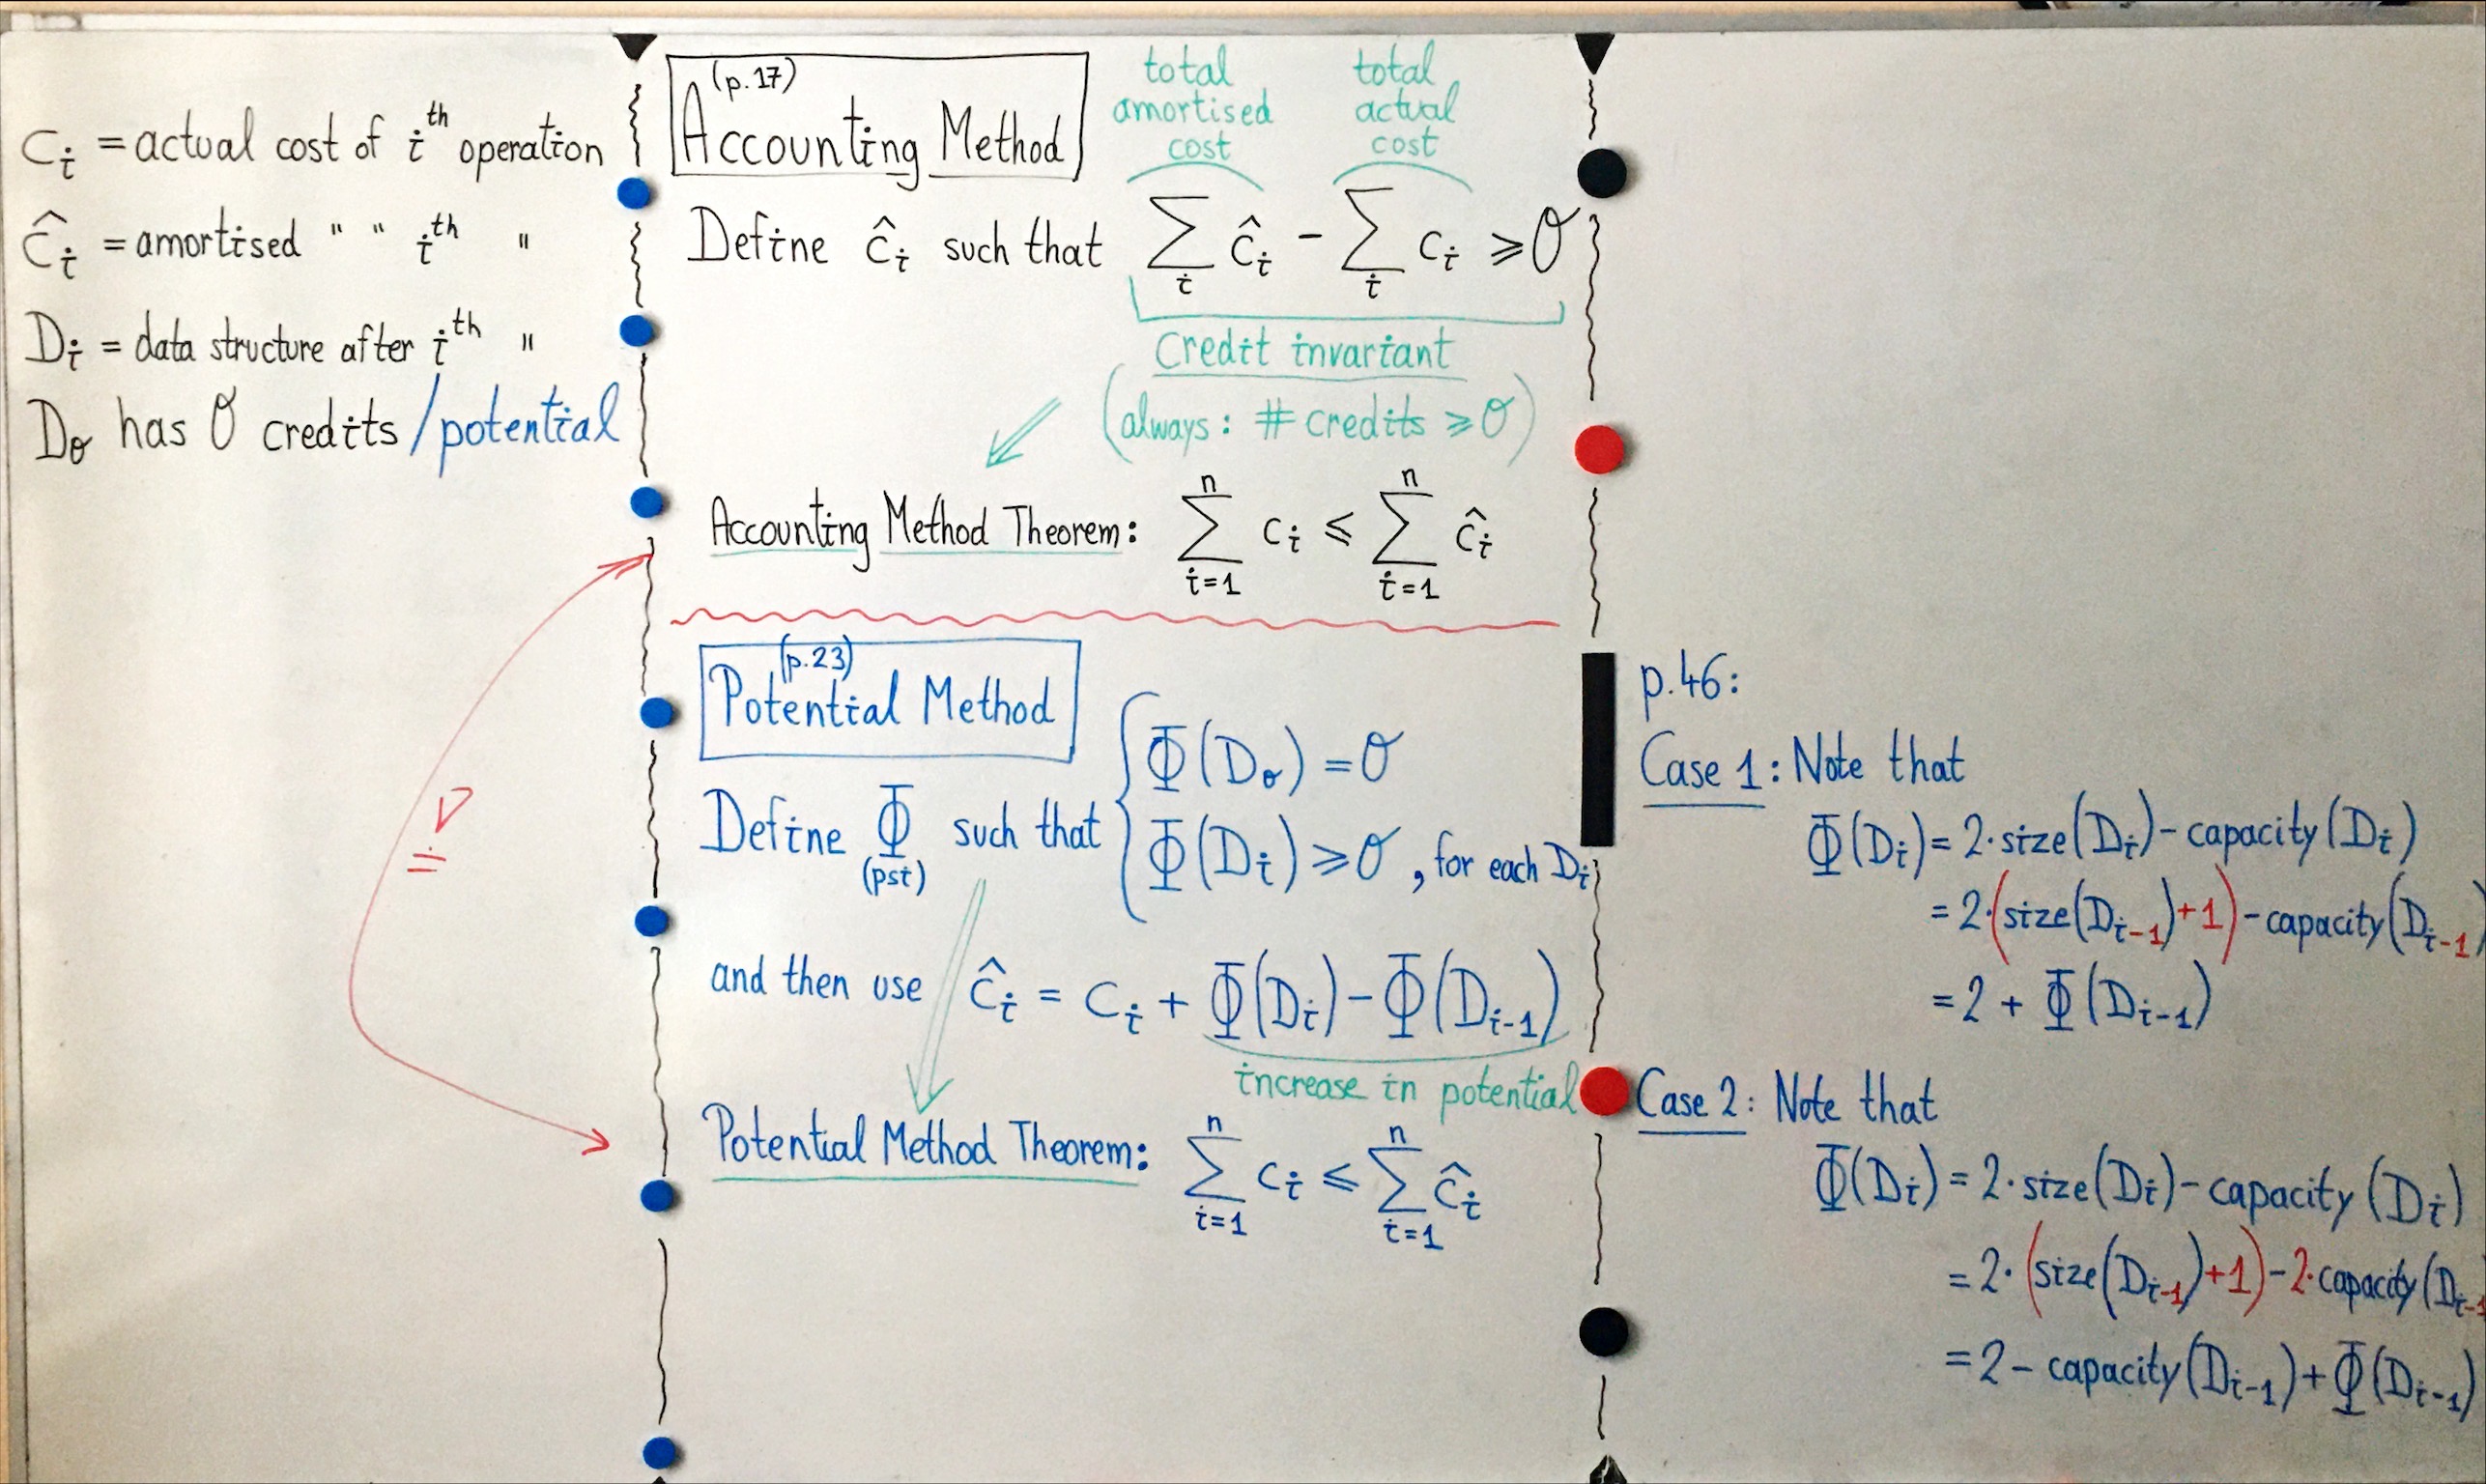 cᵢ = actual cost of iᵗʰ operation
ĉᵢ = amortised " " iᵗʰ "
Dᵢ = data structure after iᵗʰ "
D₀ has 0 credits / potential
(p.17)
Accounting Method
total amortised cost
total actual cost
Define ĉᵢ such that ∑ᵢ ĉᵢ - ∑ᵢ cᵢ ⩾ 0
Credit invariant
(always: # credits ⩾ 0)
Accounting Method Theorem: ∑ᵢ₌₁ⁿ cᵢ ⩽ ∑ᵢ₌₁ⁿ ĉᵢ
(p.23)
Potential Method
Define Φ such that { Φ(D₀) = 0
(psi)
Φ(Dᵢ) ⩾ 0, for each Dᵢ
and then use ĉᵢ = cᵢ + Φ(Dᵢ) - Φ(Dᵢ₋₁)
increase in potential
Potential Method Theorem: ∑ᵢ₌₁ⁿ cᵢ ⩽ ∑ᵢ₌₁ⁿ ĉᵢ
p.46:
Case 1: Note that
Φ(Dᵢ) = 2·size(Dᵢ) - capacity(Dᵢ)
= 2·(size(Dᵢ₋₁)+1) - capacity(Dᵢ₋₁)
= 2 + Φ(Dᵢ₋₁)
Case 2: Note that
Φ(Dᵢ) = 2·size(Dᵢ) - capacity(Dᵢ)
= 2·(size(Dᵢ₋₁)+1) - 2·capacity(Dᵢ₋₁
= 2 - capacity(Dᵢ₋₁) + Φ(Dᵢ₋₁)